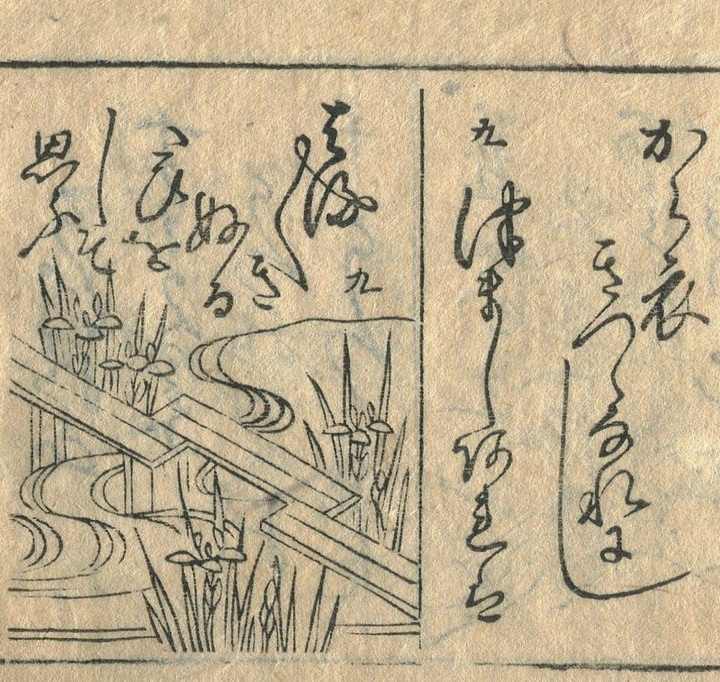 から衣
きつゝなれにし
九
つましあれは
九
はる〱
き
ぬる
たひを
しそ
思ふ